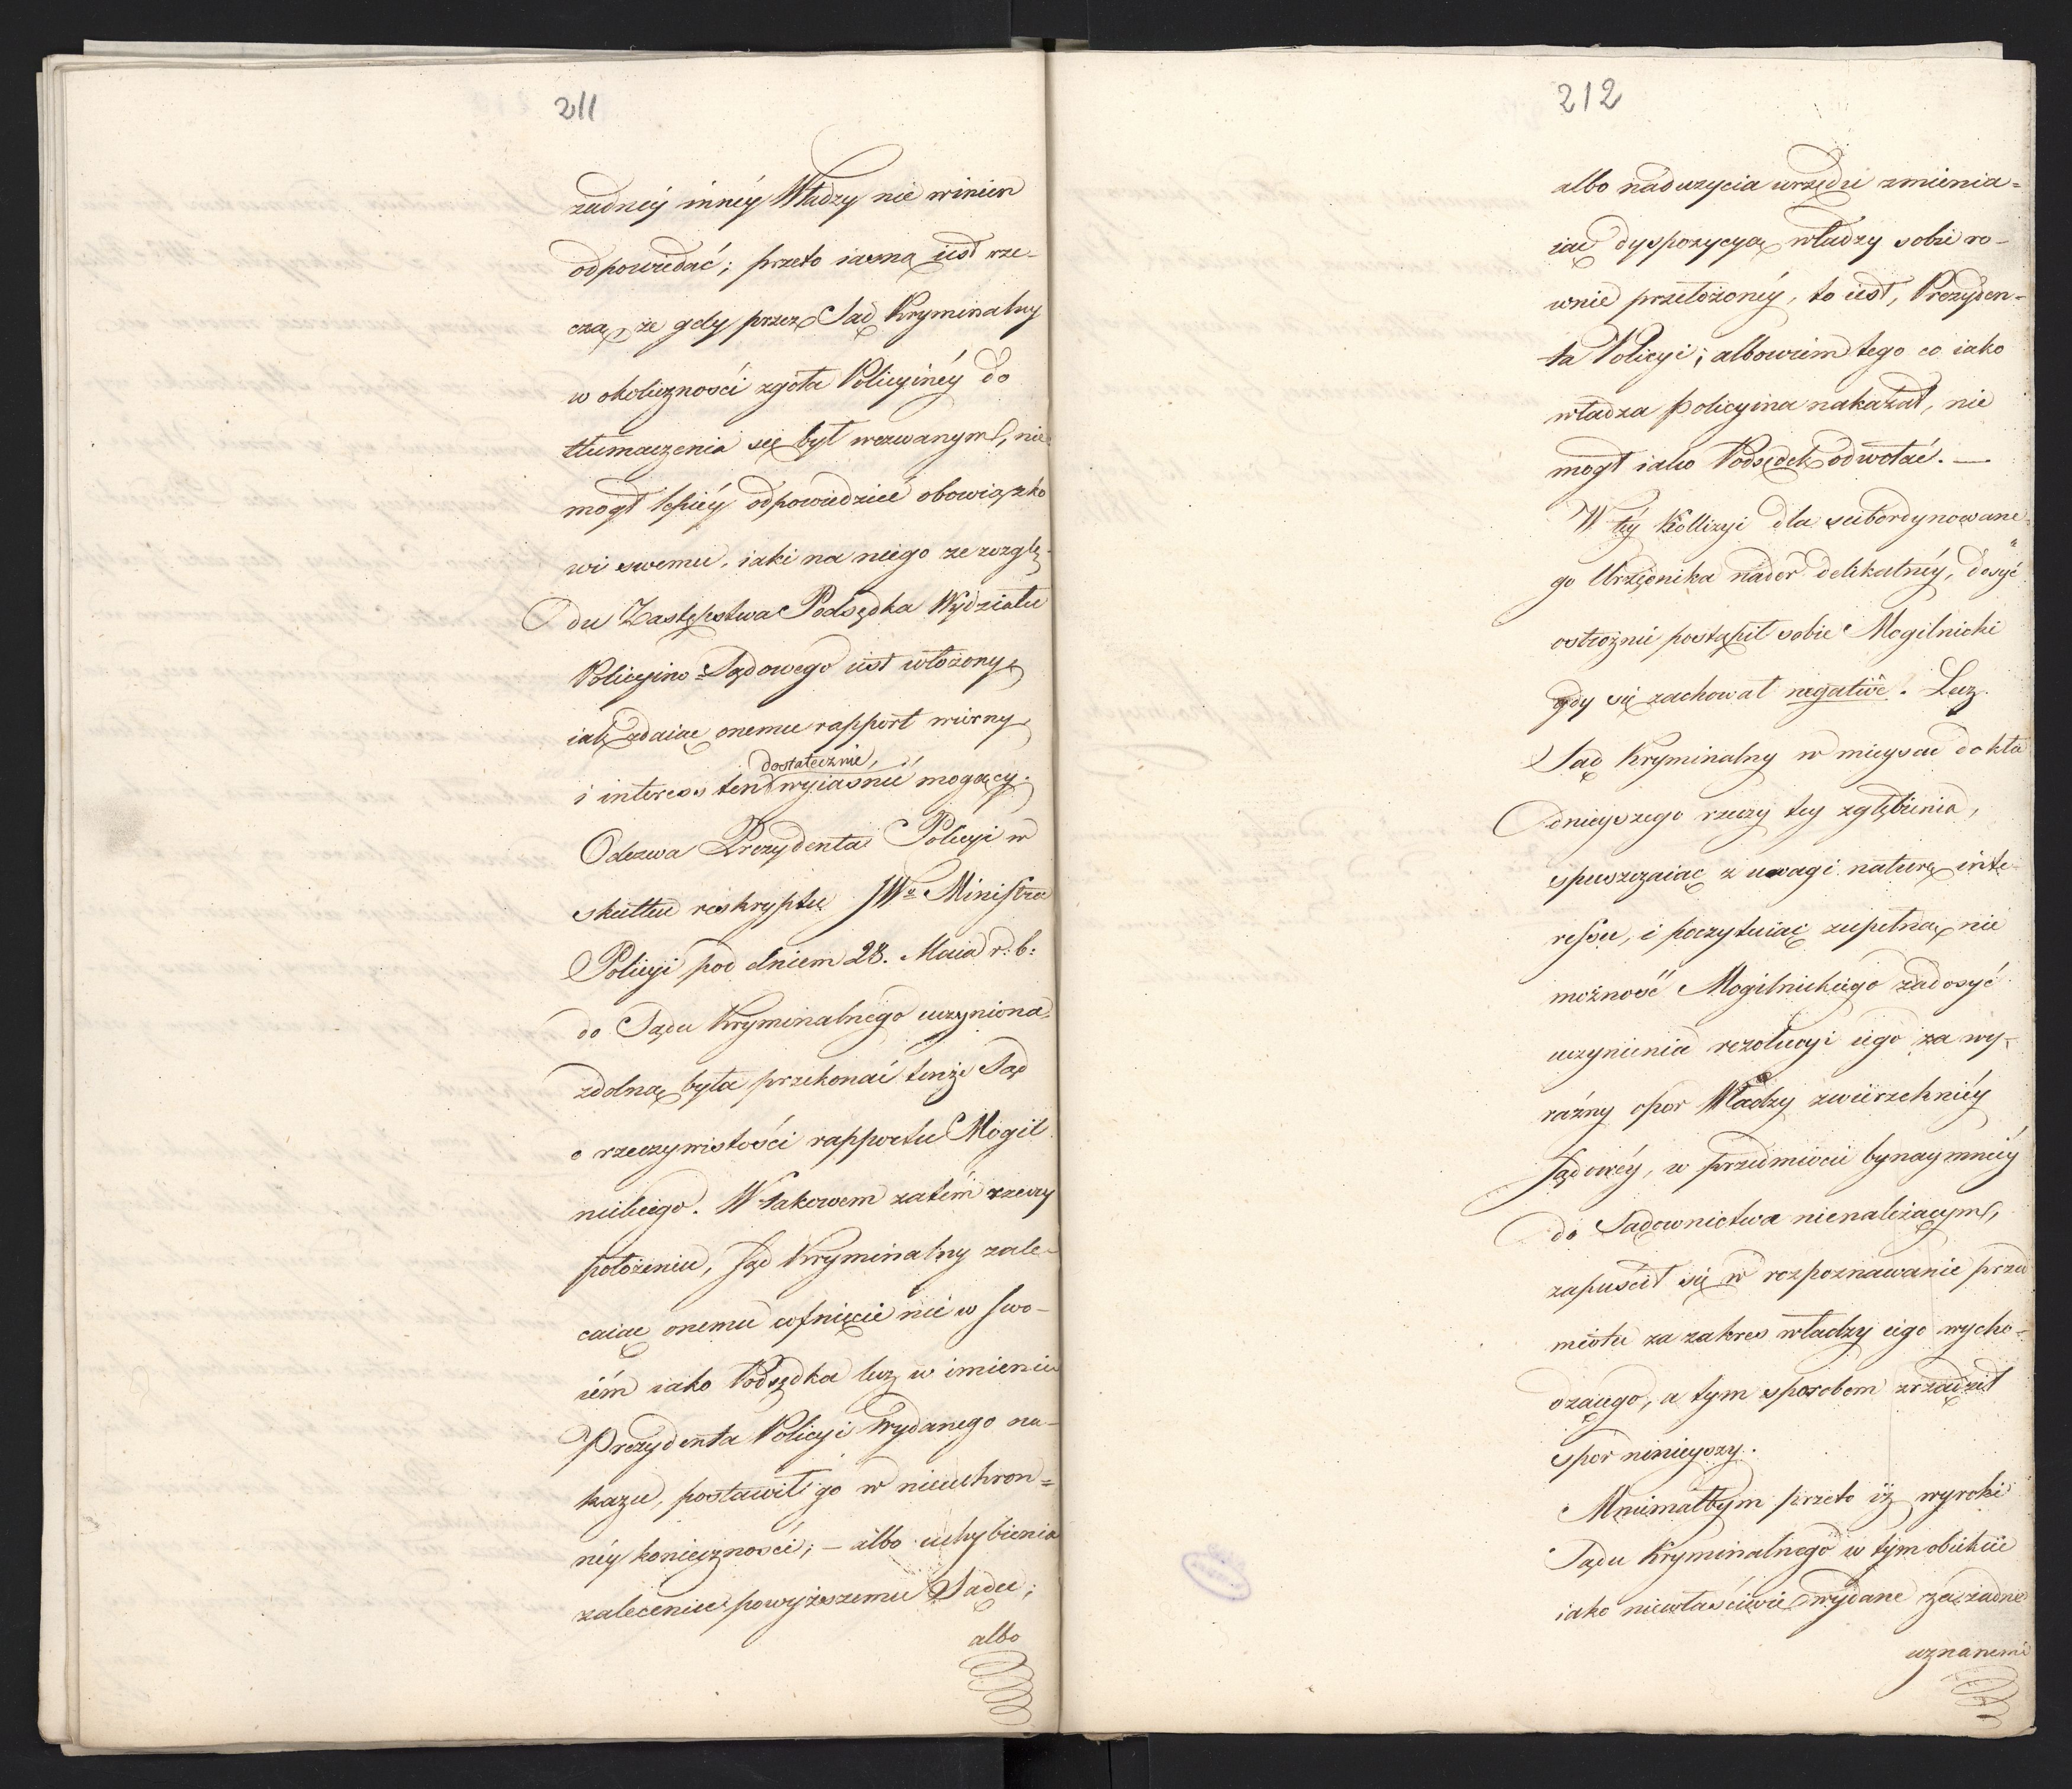 211
żadnéy innéy Władzy nie winien
odpowiedać; przeto iasną iest rze-
czą, że gdy przez Sąd Kryminalny
w okoliczności zgoła Policyinéy do
tłumaczenia się był wezwanym, nie
mogł lepiéy odpowiedzieć obowiązko
wi swemu, iaki na niego ze wzglę-
du Zastępstwa Podsędka Wydziału
Policyino=Sądowego iest włożony,
iak zdaiąc onemu rapport wierny,
dostatecznie,
i interess ten wyiasnić mogący.
Odezwa Prezydenta Policyi w
skutku reskryptu JWo Ministra
Policyi pod dniem 28. Maia r. b.
do Sądu Kryminalnego uczyniona,
zdolną była przekonać tenże Sąd
o rzeczywistości rapportu Mogil
nickiego. W takowem zatém rzeczy
położeniu, Sąd Kryminalny zale-
caiąc onemu cofnięcie nie w swo-
iém iako Podsędka lecz w imieniu
Prezydenta Policyi wydanego na-
kazu, postawił go w nieuchron=
néy konieczności; – albo uchybienia
zaleceniu powyższemu Sądu;
albo
212
albo nadużycia urzędu zmienia=
iąc dyspozycyą władzy sobie ro-
wnie przełożonéy, to iest, Prezyden-
ta Policyi; albowiem tego co iako
władza policyina nakazał, nie
mogł iako Podsędek odwołać. —
W téy Kollizyi dla subordynowane-
go Urzędnika nader delikatnéy, dosyć
ostrożnie postąpił sobie Mogilnicki
gdy się zachował negative. Lecz
Sąd Kryminalny w mieysce dokła
dnieyszego rzeczy tey zgłębienia,
spuszczaiąc z uwagi naturę inte
ressu, i poczytuiąc zupełną nie
możność Mogilnickiego zadosyć
uczynienia rezolucyi iego za wy-
raźny opor Władzy zwierzchniéy
Sądowéy, w przedmiocie bynaymniéy
do Sądownictwa nienależącym,
zapuścił się w rozpoznawanie przed
miotu za zakres władzy iego wycho=
dzącego, a tym sposobem zrządził
spor ninieyszy.
Mniemałbym przeto iż wyroki
Sądu Kryminalnego w tym obiekcie
iako niewłaściwie wydane za żadne
uznanemi